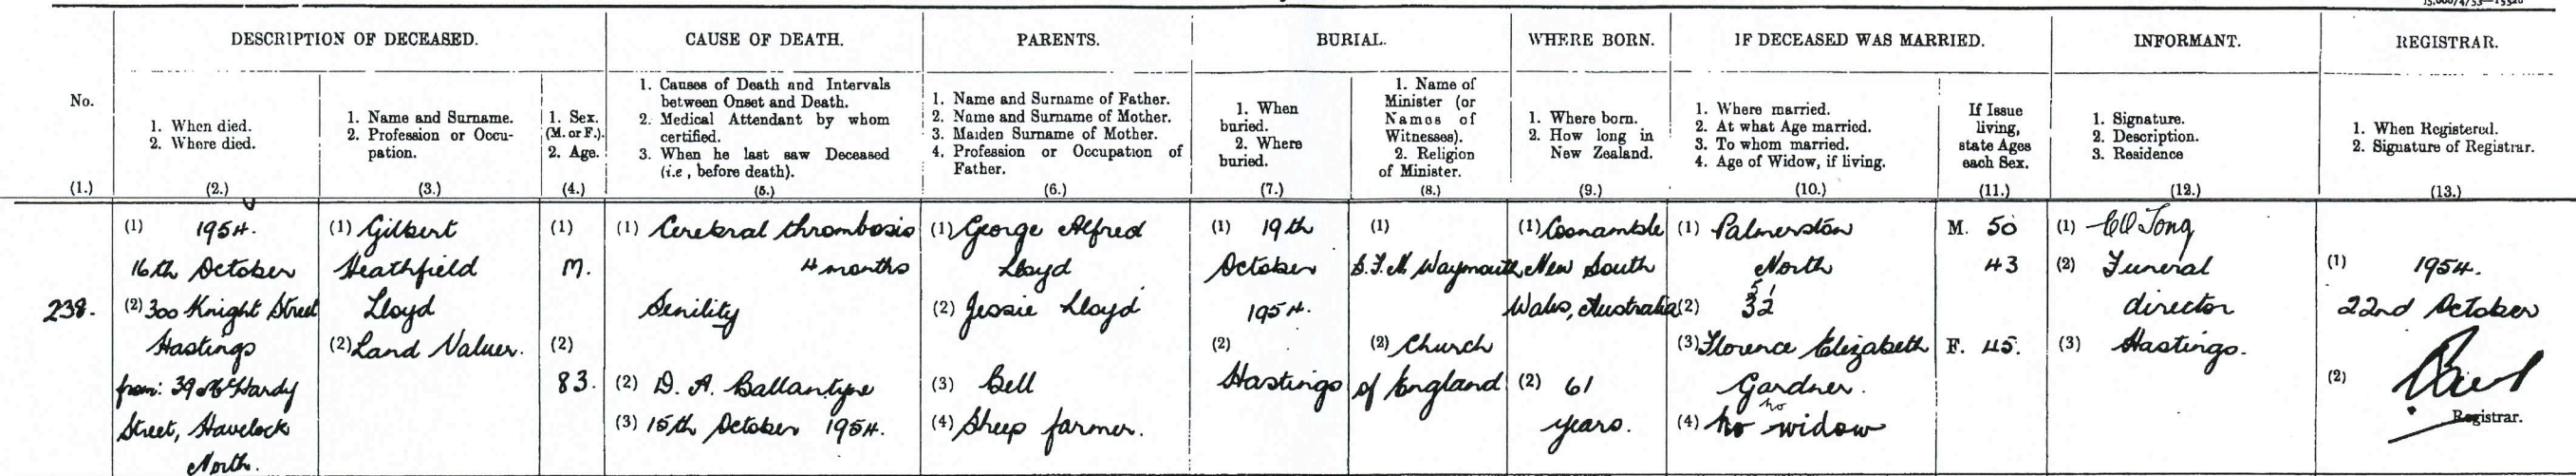 15,000/4/53—15520
DESCRIPTION OF DECEASED.
CAUSE OF DEATH.
PARENTS.
BURIAL.
WHERE BORN.
IF DECEASED WAS MARRIED.
INFORMANT.
REGISTRAR.
No.
(1.)
1. When died.
2. Where died.
(2.)
1. Name and Surname.
2. Profession or Occu-
pation.
(3.)
1. Sex.
(M. or F.).
2. Age.
(4.)
1. Causes of Death and Intervals
between Onset and Death.
2. Medical Attendant by whom
certified.
3. When he last saw Deceased
(i.e , before death).
(5.)
1. Name and Surname of Father.
2. Name and Surname of Mother.
3. Maiden Surname of Mother.
4. Profession or Occupation of
Father.
(6.)
1. When
buried.
2. Where
buried.
(7.)
1. Name of
Minister (or
Names of
Witnesses).
2. Religion
of Minister.
(8.)
1. Where born.
2. How long in
New Zealand.
(9.)
1. Where married.
2. At what Age married.
3. To whom married.
4. Age of Widow, if living.
(10.)
If Issue
living,
state Ages
each Sex.
(11.)
1. Signature.
2. Description.
3. Residence
(12.)
1. When Registered.
2. Signature of Registrar.
(13.)
238.
(1) 1954.
16th October
(2) 300 Knight Street
Hastings
from: 39 McHardy
Street, Havelock
North.
(1) Gilbert
Heathfield
Lloyd
(2) Land Valuer.
(1)
M.
(2)
83.
(1) Cerebral thrombosis
4 months
Senility
(2) D. A. Ballantyne
(3) 15th October 1954.
(1) George Alfred
Lloyd
(2) Jessie Lloyd
(3) Bell
(4) Sheep farmer.
(1) 19th
October
1954.
(2)
Hastings
(1)
Waymouth
(2) Church
of England
(1) Coonamble
New South
Wales, Australia
(2) 61
years.
(1) Palmerston
North
(2) 32
(3) Florence Elizabeth
Gardner.
no
(4) no widow
M. 50
43
F. 45.
(1) Tong
(2) Funeral
director
(3) Hastings.
(1) 1954.
22nd October
(2)
Registrar.